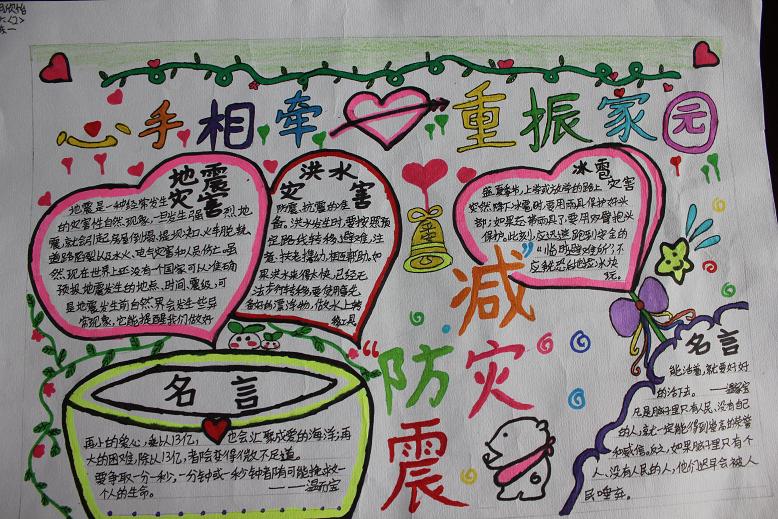 心手相牵 重振家园
地震灾害
地震是一种经常发生
的灾害性自然现象,一旦发生强烈地
震,就会引起房屋倒塌、堤坝决口、火车脱轨、
道路断裂以及水火、电气灾害和人员伤亡。虽
然,现在世界上还没有一个国家可以准确
预报地震发生的地点、时间、震级,可
是地震发生前自然界会发生些异
常现象,它能提醒我们做好
洪水灾害
防震、抗震的准
备。洪水发生时,要按照预
定路线转移、避难,注
意扶老携幼,相互帮助,如
果洪水来得太快,已经无
法步行转移,要使用事先
备好的漂浮物,做水上转
移工具
冰雹灾害
盛夏季节,上学或放学的路上
突然降下冰雹时,要用雨具保护好头
部;如果忘带雨具了,要用双臂把头
保护,此刻,应迅速跑到安全的
“临时避难所”,不
应就恐的地捡冰块
玩。
“防震减灾”
名言
再小的爱心,乘以13亿,也会汇聚成爱的海洋;再
大的困难,除以13亿,都会变得微不足道。
要争取一分一秒,一分钟或一秒钟都有可能挽救一
个人的生命。
——温家宝
名言
能活着,就要好好
的活下去。——温家宝
凡是脑子里只有人民、没有自己
的人,就一定能得到崇高的荣誉
和威信。反之,如果脑子里只有个
人、没有人民的人,他们迟早会被人
民唾弃。